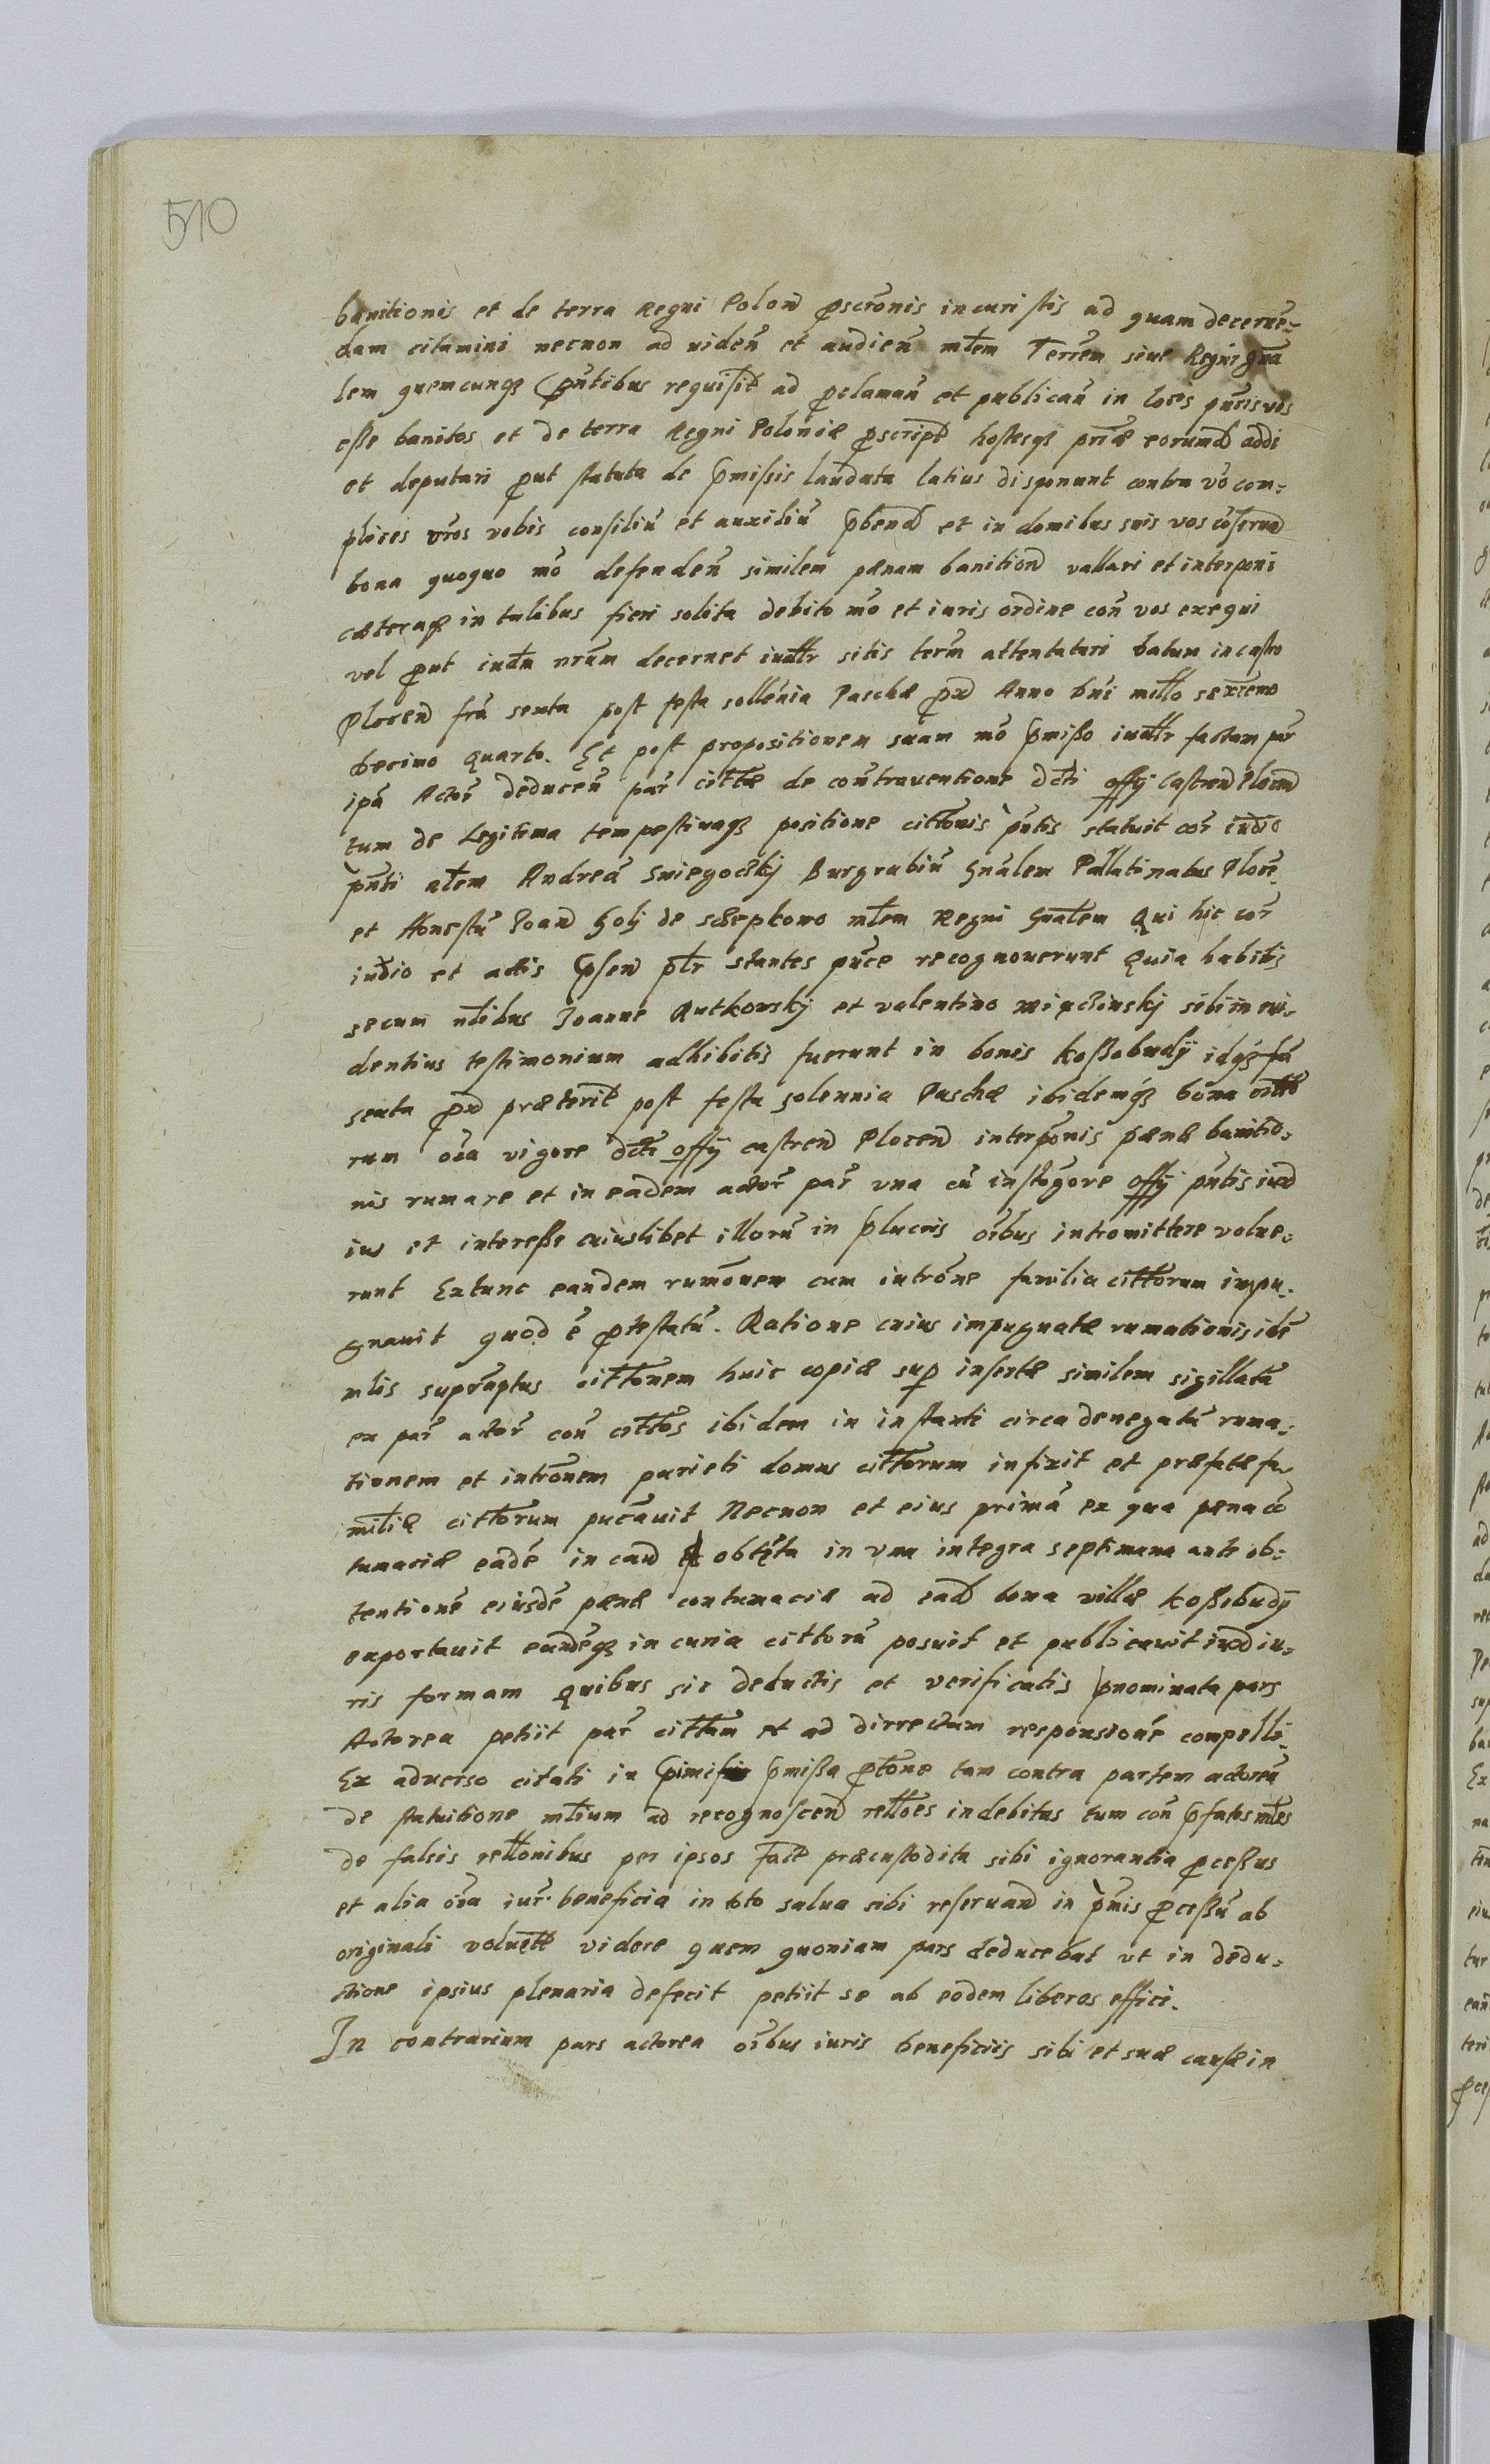 510
banitionis et de terra Regni Polon̄ ꝓscrōnis incuristis ad quam decernē-
dam citamini necnon ad uidēn et audiēn mtēm Terrēm siue Regni gna
lem quemcunqȝ p̄ntibus requisit̄ ad ꝓclamān et publicān in locis p̄ncis vos
esse banitos et de terra Regni Poloniæ ꝓscript̄ hostesqȝ priæ eorumd̄ addi
et deputari ꝓut statuta de p̄missis laudata latius disponunt contra vō com-
plices vr̄os vobis consiliū et auxiliū p̄bend̄ et in domibus suis vos cōseruā
bona quoquo mō defendēn similem pænam banition̄ vallari et interponi
cæteraqȝ in talibus fieri solita debito mō et iuris ordine cōn vos exequi
vel ꝓut iudm nr̄um decernet iudtr sitis term̄ attentaturi Datum in castro
Plocen̄ frā sexta post festa sollēnia Paschæ ꝓx̄ Anno Dn̄i mitto sexcēmo
Decimo quarto. Et post propositionem suam mō p̄misso iudtr factam per
ipā Actor̄ deducēn par̄ citt̄æ de contrauentione dc̄ti offij Castren̄ Plocen̄
tum de Legitima tempestiuaqȝ positione cittōnis p̄ntis statuit cor̄ iud̄io
p̄nti atēm Andreā Sniegoc̄kj Burgrabiū Gn̄alem Pallatinatus Ploce-
et Honestū Joan̄ Golj de Sczepkowo mtēm Regni Gn̄alem Qui hic cor̄
iud̄io et actis p̄sen̄ ptr̄ stantes p̄nce recognouerunt Quia habitis
secum n̄tibus Joanne Rutkowskj et valentino miączinskj sibi in eui-
dentius testimonium adhibitis fuerunt in bonis Kossobudÿ idqȝ fā
sexta ꝓx̄ præterit̄ post festa solennia Paschæ ibidemqȝ bona citto
rum oīa vigore dc̄ti offij castren̄ Plocen̄ interpōnis pænæ banitio-
nis rumare et in eadem actor̄ par̄ vna cū instīgore offij p̄ntis iux̄
ius et interesse cuiuslibet illorū in p̄lucris oībus intromittere volue-
runt Extunc eandem rumōnem cum introne familia cittorum impu-
gnauit quod ē ꝓtestatū. Ratione cuius impugnatæ rumationis idē
mlis supraptus cittōnem huic copiæ sup̄ insertæ similem sigillatā
ex par̄ actor̄ cōn cittos ibidem in instanti circa denegatā ruma-
tionem et intrōnem parieti domus cittorum infixit et præfatæ fa
miliæ cittorum pucāuit Necnon et eius primā ex qua pæna cō
tumaciæ eadē in caū obtēta in vna integra septimana ante ob-
tentionē eiusdē pænæ contumaciæ ad ead̄ bona villæ Kossobudÿ
exportauit eandēqȝ in curia cittorū posuit et publicauit iux̄ iu-
ris formam Quibus sic deductis et verificatis p̄nominata pars
Actorea petiit par̄ cittam et ad dirrectam responsionē compelli.
Ex aduerso citati in p̄missa ꝓtōne tam contra partem actorēa
de statuitione mtium ad recognoscen̄ rettoes indebitas tum cōn p̄fatos mtes
de falsis rettonibus per ipsos fact̄ præcustodita sibi ignorantia ꝓcessus
et alia oīa iur̄ beneficia in toto salua sibi reseruan̄ in p̄mis ꝓcessū ab
originali voluett videre quem quoniam pars deducebat vt in dedu-
ctione ipsius plenaria defecit petiit se ab eodem liberos effici.
In contrarium pars actorea oībus iuris beneficiis sibi et suæ causæ in